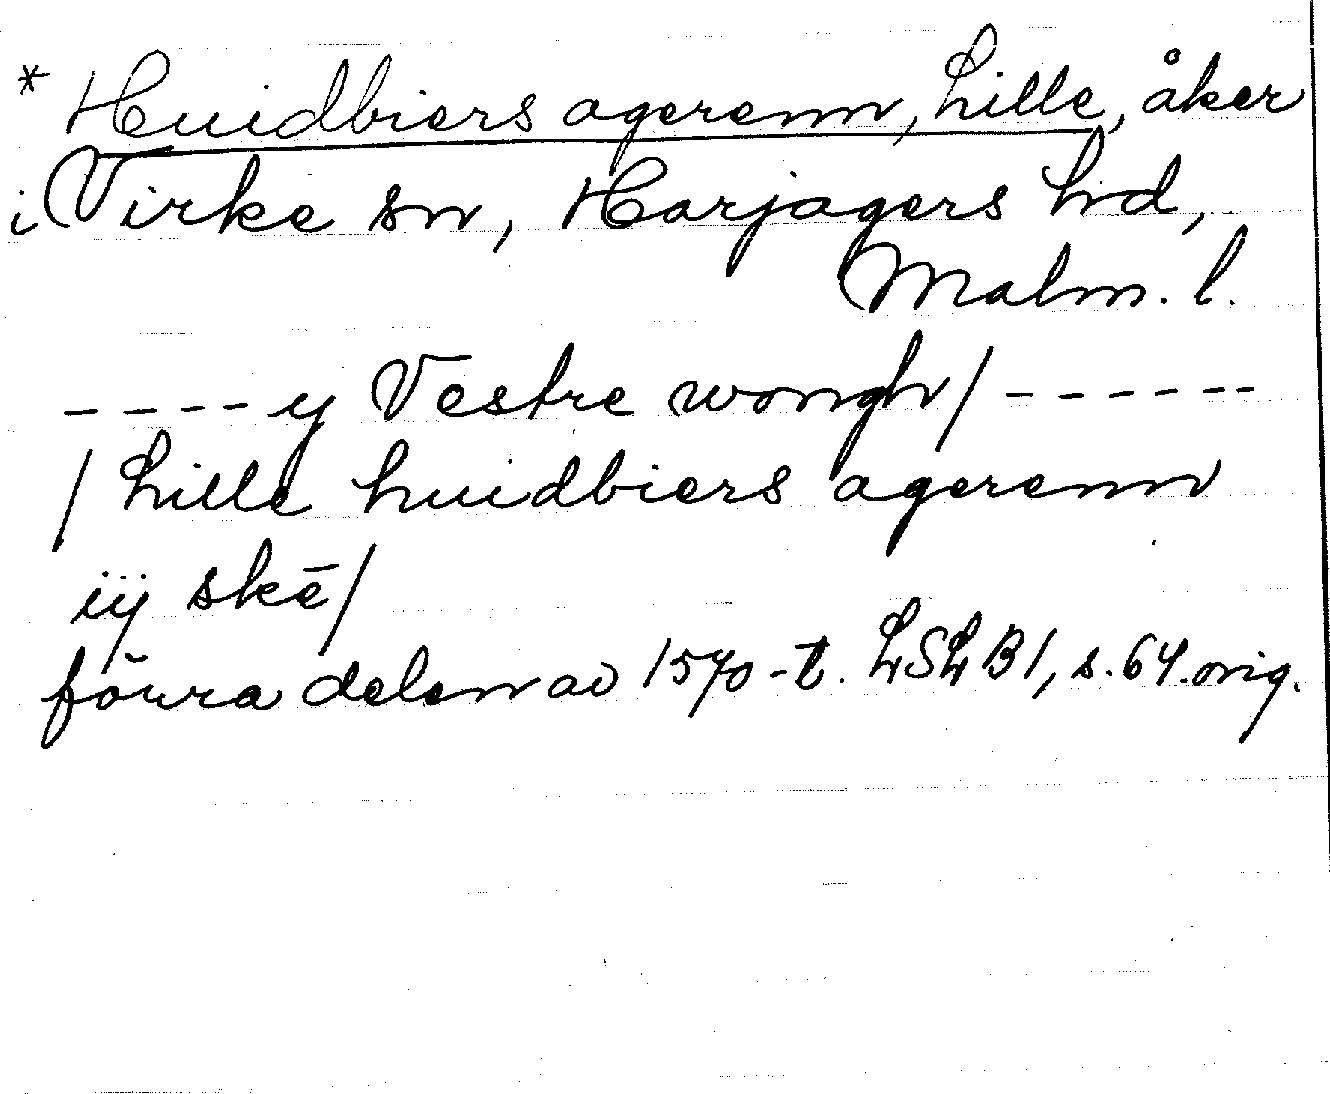 * Huidbiers agerenn, Lille, åker
i Virke sn, Harjagers hd,
Malm. l.
----y Vestre wongh/------
/ Lille huidbiers agerenn
iij skē/
förra delen av 1570-t. LSLB1, s. 64. orig.